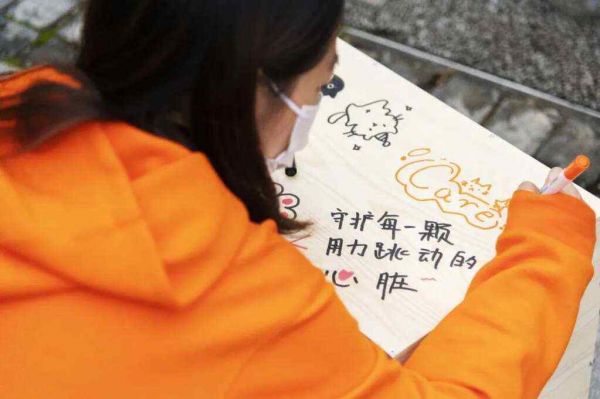 Care
守护每一颗
用力跳动的
心脏